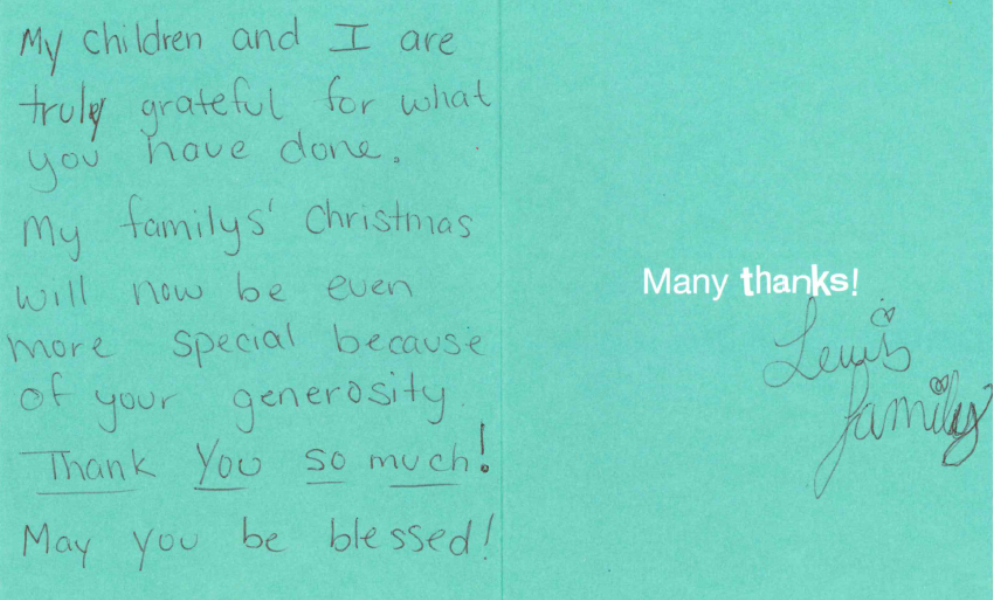 My children and I are
truly grateful for what
you have done.
My familys' Christmas
will now be even
more special because
of your generosity.
Thank You so much!
May you be blessed!
Many thanks!
Lewis
family